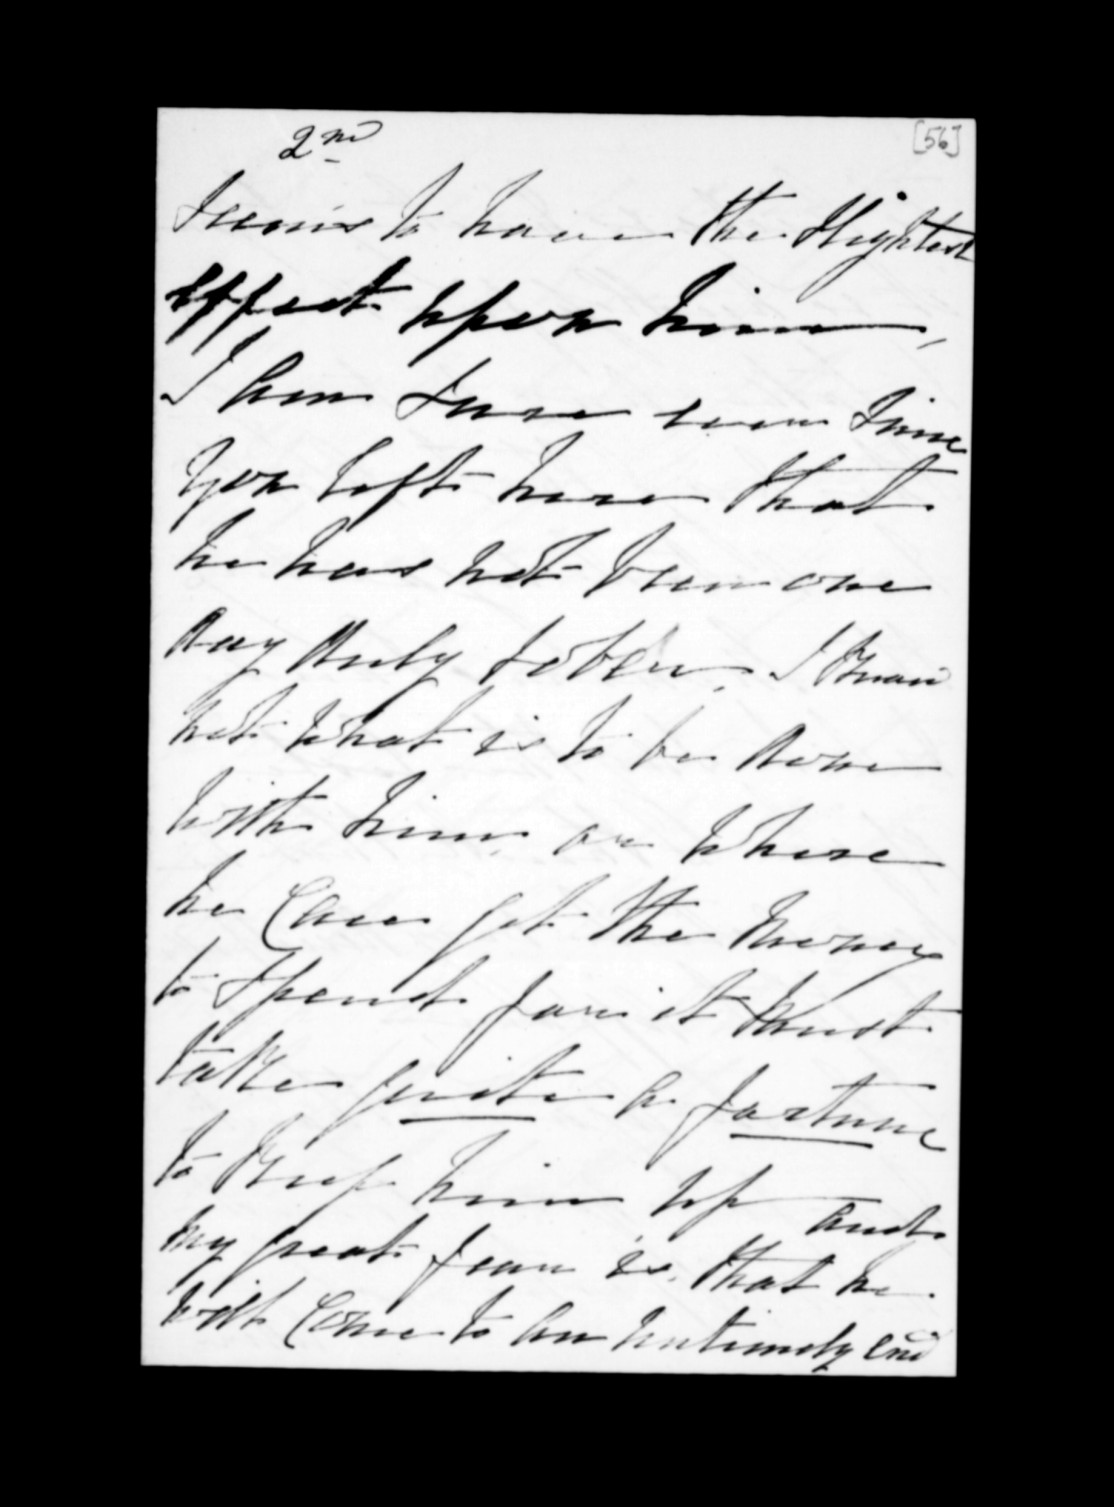 2nd
[56]
Seems to have the slightest
effect upon him,
I hem sure ever since
you left here that
he has not been one
day duly sober, I know
not what is to be done
with him or where
he can get the money
to spend for it must
take quite a fortune
to keep him up and
my great fear is that he
will come to an untimely end